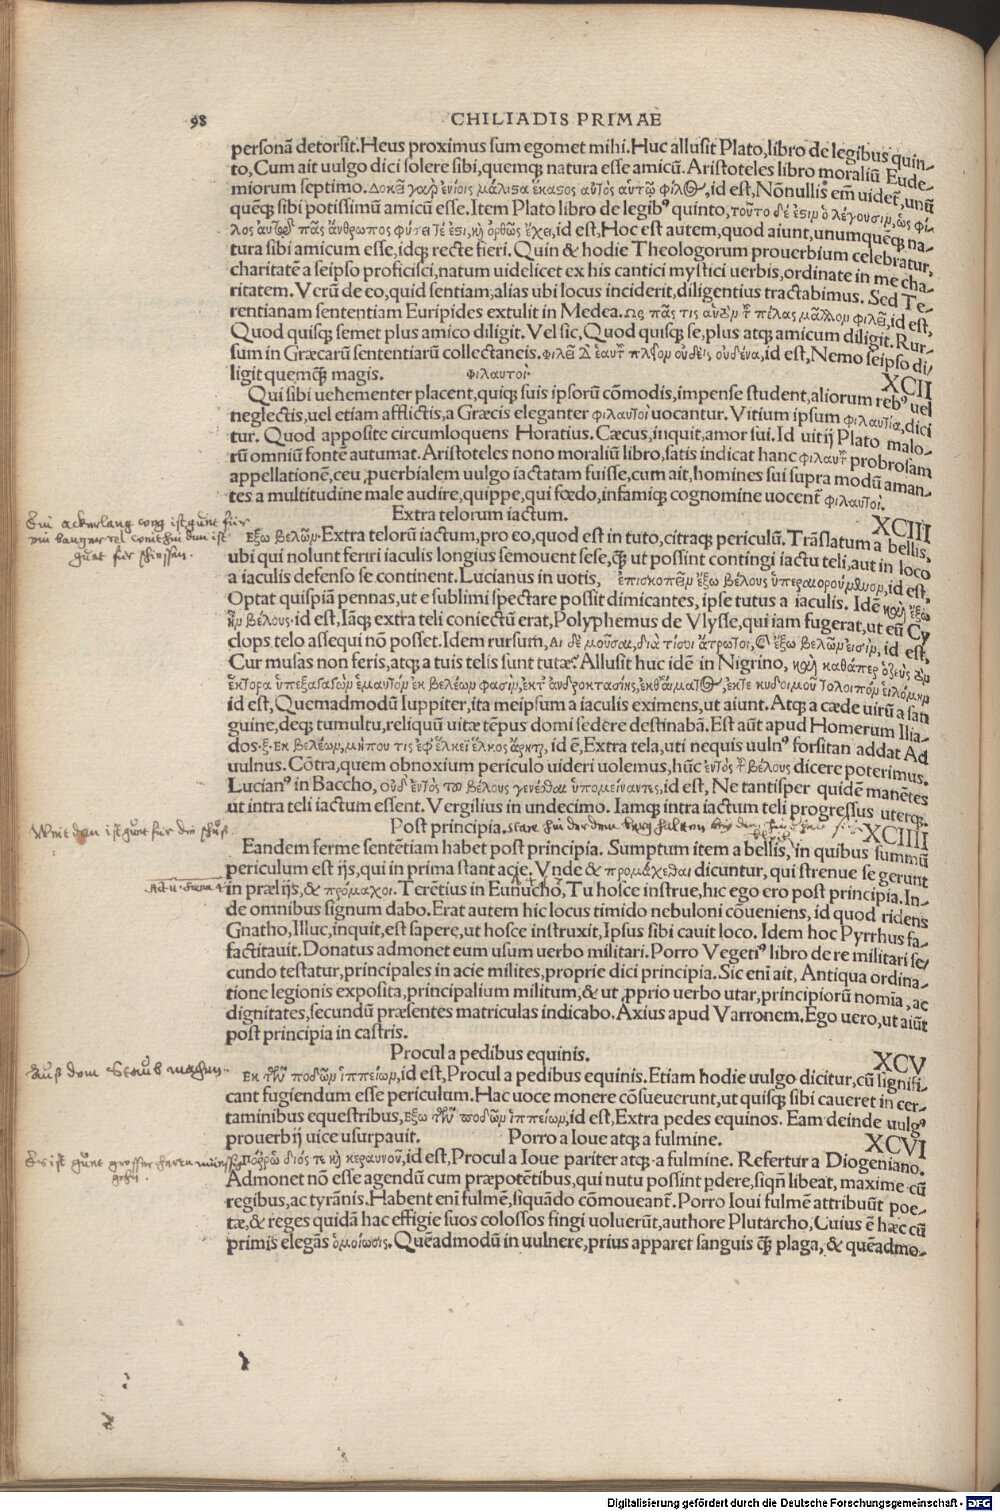 98 CHILIADIS PRIMAE
personā detorsit. Heus proximus sum egomet mihi. Huc allusit Plato, libro de legibus quin-
to, Cum ait uulgo dici solere sibi, quemq; natura esse amicū. Aristoteles libro moraliū Eude-
miorum septimo. Δοκεῖ γαρ ἐνίοις μάλιϛα ἕκαϛος αὐτὸς αὑτῷ φίλος, id est, Nōnullis em̄ uidet̄, unū
quēq; sibi potissimū amicū esse. Item Plato libro de legibꝰ quinto, τοῦτο δέ ἐϛιν ὃ λέγουσιν, ὡς φί-
λος αὑτῷ πᾶς ἄνθρωπος φύσει τέ ἐϛι, καὶ ὀρθῶς ἔχει, id est, Hoc est autem, quod aiunt, unumquēq; na-
tura sibi amicum esse, idq; recte fieri. Quin & hodie Theologorum prouerbium celebratur,
charitatē a seipso proficisci, natum uidelicet ex his cantici mystici uerbis, ordinate in me cha-
ritatem. Verū de eo, quid sentiam, alias ubi locus inciderit, diligentius tractabimus. Sed Te-
rentianam sententiam Euripides extulit in Medea. Ως πᾶς τις αὑτὸν τοῦ πέλας μᾶλλον φιλεῖ, id est,
Quod quisq; semet plus amico diligit. Vel sic, Quod quisq; se, plus atq; amicum diligit. Rur-
sum in Græcarū sententiarū collectaneis. φιλεῖ δ᾽ ἑαυτοῦ πλεῖον οὐδεὶς οὐδένα, id est, Nemo seipso di-
ligit quemq̄ magis. φιλαυτοι XCII
Qui sibi uehementer placent, quiq; suis ipsorū cōmodis, impense student, aliorum rebꝰ uel
neglectis, uel etiam afflictis, a Græcis eleganter φιλαυτοὶ uocantur. Vitium ipsum φιλαυτία, dici
tur. Quod apposite circumloquens Horatius. Cæcus, inquit, amor sui. Id uitij Plato malo-
rū omniū fontē autumat. Aristoteles nono moraliū libro, satis indicat hanc φιλαυτου probrosam
appellationē, ceu ꝓuerbialem uulgo iactatam fuisse, cum ait, homines sui supra modū aman-
tes a multitudine male audire, quippe, qui fœdo, infamiq; cognomine uocent̄ φιλαυτοι.
Extra telorum iactum. XCIII
Εξω βελῶν. Extra telorū iactum, pro eo, quod est in tuto, citraq; periculū. Trāslatum a bellis,
ubi qui nolunt feriri iaculis longius semouent sese, q̄ ut possint contingi iactu teli, aut in loco
a iaculis defenso se continent. Lucianus in uotis, ἐπισκοπεῖν ἔξω βέλους ὑπεραιωρούμενον, id est,
Optat quispiā pennas, ut e sublimi spectare possit dimicantes, ipse tutus a iaculis. Idē καὶ ἔξω
ἦν βέλους. id est, Iāq; extra teli coniectū erat, Polyphemus de Vlysse, qui iam fugerat, ut eū Cy
clops telo assequi nō posset. Idem rursum, Αι δὲ μοῦσαι, διὰ τί σοι ἄτρωτοι, καὶ ἔξω βελῶν εἰσίν, id est,
Cur musas non feris, atq; a tuis telis sunt tutæ? Allusit huc idē in Nigrino, καὶ καθάπερ ὁ ζεὺς τὸν
ἕκτορα ὑπεξαγαγὼν ἐμαυτὸν ἐκ βελέων φασὶν, ἐκτ᾽ ἀνδροκτασίης, ἐκθ᾽ αἵματος, ἔκτε κυδοιμοῦ τολοιπὸν εἱλόμην
id est, Quemadmodū Iuppiter, ita meipsum a iaculis eximens, ut aiunt. Atq; a cæde uirū a san
guine, deq; tumultu, reliquū uitæ tēpus domi sedere destinabā. Est aūt apud Homerum Ilia-
dos.ξ. Εκ βελέων, μήπου τις ἐφ᾽ ἕλκεϊ ἕλκος ἄρηται, id ē, Extra tela, uti nequis uulnꝰ forsitan addat Ad
uulnus. Cōtra, quem obnoxium periculo uideri uolemus, hūc ἐντὸς τοῦ βέλους dicere poterimus.
Lucianꝰ in Baccho, οὐδ᾽ ἐντὸς τοῦ βέλους γενέσθαι ὑπομείναντες, id est, Ne tantisper quidē manētes
ut intra teli iactum essent. Vergilius in undecimo. Iamq; intra iactum teli progressus uterq;.
Post principia. XCIIII
Eandem ferme sentētiam habet post principia. Sumptum item a bellis, in quibus summū
periculum est ijs, qui in prima stant acie. Vnde & προμάχεσθαι dicuntur, qui strenue se gerunt
in prælijs, & πρόμαχοι. Terētius in Eunucho, Tu hosce instrue, hic ego ero post principia. In-
de omnibus signum dabo. Erat autem hic locus timido nebuloni cōueniens, id quod ridens
Gnatho, Illuc, inquit, est sapere, ut hosce instruxit, Ipsus sibi cauit loco. Idem hoc Pyrrhus fa-
factitauit. Donatus admonet eum usum uerbo militari. Porro Vegetiꝰ libro de re militari se-
cundo testatur, principales in acie milites, proprie dici principia. Sic enī ait, Antiqua ordina-
tione legionis exposita, principalium militum, & ut ꝓprio uerbo utar, principiorū nomīa, ac
dignitates, secundū præsentes matriculas indicabo. Axius apud Varronem. Ego uero, ut aiūt
post principia in castris.
Procul a pedibus equinis. XCV
Εκ τῶν ποδῶν ἱππείων, id est, Procul a pedibus equinis. Etiam hodie uulgo dicitur, cū signifi-
cant fugiendum esse periculum. Hac uoce monere cōsueuerunt, ut quisq; sibi caueret in cer-
taminibus equestribus, ἔξω τῶν ποδῶν ἱππείων, id est, Extra pedes equinos. Eam deinde uulgꝰ
prouerbij uice usurpauit. Porro a Ioue atq; a fulmine. XCVI
Πόῤῥω διός τε καὶ κεραυνοῦ, id est, Procul a Ioue pariter atq; a fulmine. Refertur a Diogeniano.
Admonet nō esse agendū cum præpotētibus, qui nutu possint ꝑdere, siqn̄ libeat, maxime cū
regibus, ac tyrānis. Habent enī fulmē, siquādo cōmoueant̄. Porro Ioui fulmē attribuūt poe-
tæ, & reges quidā hac effigie suos colossos fingi uoluerūt, authore Plutarcho, Cuius ē hæc cū
primis elegās ὁμοίωσις. Quēadmodū in uulnere, prius apparet sanguis q̄ plaga, & quēadmo-
Ein ackerlang weg ist gūt für
gūt für schiessen.
Weit dan ist gūt für die schuß
Auß dem Staub machen.
Es ist gūt grosser herrn müssig
gehen.
Digitalisierung gefördert durch die Deutsche Forschungsgemeinschaft - DFG